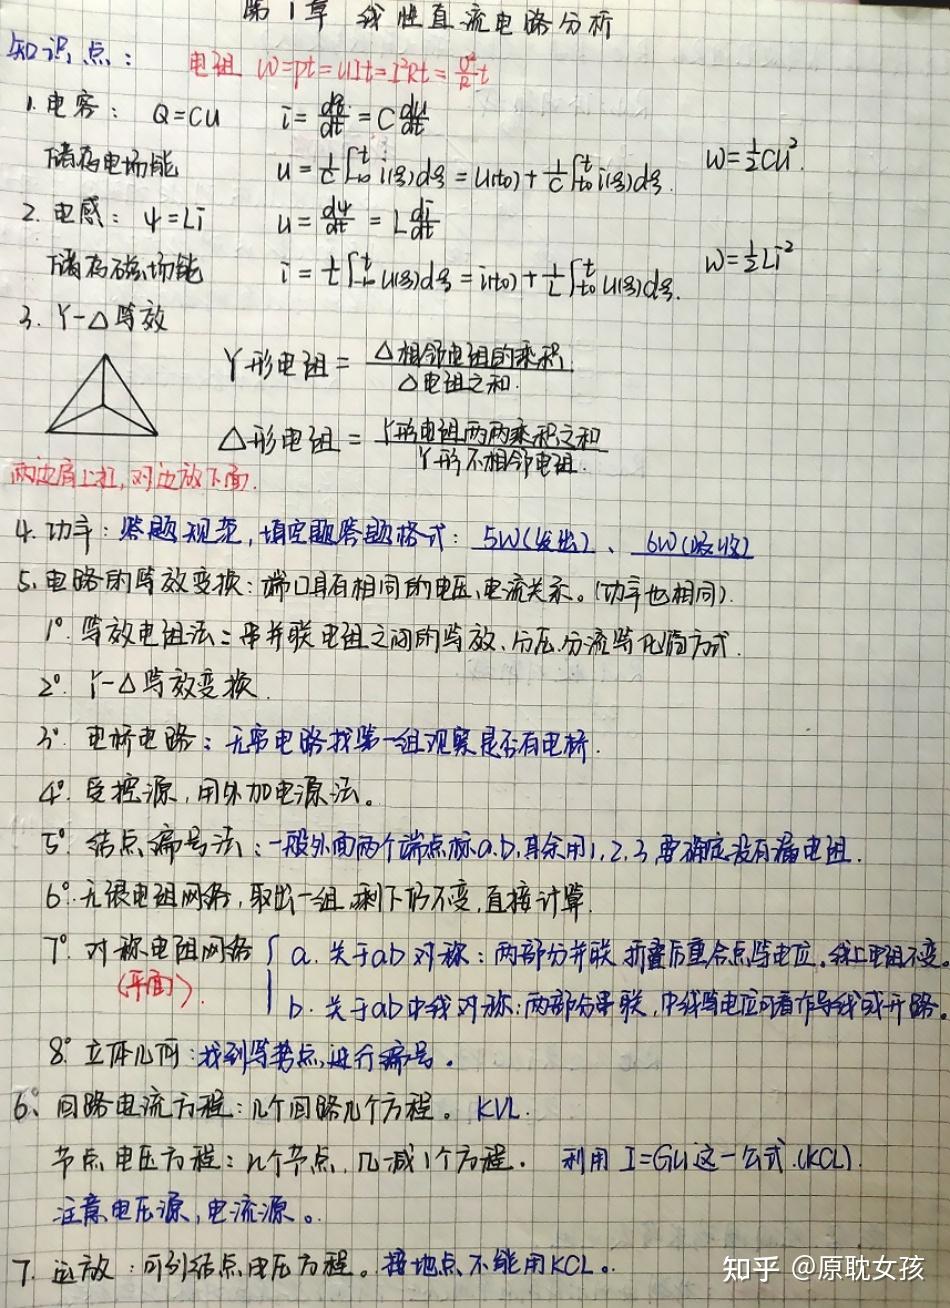 第1章 线性直流电路分析
知识点:
电阻 W=pt=UIt=I²Rt=U²/R t
1. 电容: Q=CU i=dq/dt=C du/dt
储存电场能 u=1/C∫_{-∞}^{t} i(ξ)dξ=u(t0)+1/C∫_{t0}^{t} i(ξ)dξ. W=1/2Cu².
2. 电感: ψ=Li u=dψ/dt=L di/dt
储存磁场能 i=1/L∫_{-∞}^{t} u(ξ)dξ=i(t0)+1/L∫_{t0}^{t} u(ξ)dξ. W=1/2Li²
3. Y-△等效
Y形电阻=△相邻电阻的乘积/△电阻之和.
△形电阻=Y形电阻两两乘积之和/Y形不相邻电阻.
两边肩上扛,对边放下面.
4. 功率:答题规范,填空题答题格式: 5W(发出)、6W(吸收)
5. 电路的等效变换:端口具有相同的电压、电流关系。(功率也相同).
1°. 等效电阻法:串并联电阻之间的等效、分压、分流等化简方式.
2°. Y-△等效变换.
3°. 电桥电路:无穷电路找第一组观察是否有电桥.
4°. 受控源,用外加电源法。
5° 结点编号法:一般外面两个端点标a.b,其余用1,2,3,要确定没有漏电阻.
6°. 无限电阻网络,取出一组,剩下仍不变,直接计算.
7° 对称电阻网络 a. 关于ab对称:两部分并联,折叠后重合点等电位。线上电阻不变。
(平面). b. 关于ab中线对称:两部分串联,中线等电位可看作导线或开路。
8° 立体几何:找到等势点,进行编号。
6、回路电流方程:几个回路几个方程。KVL.
节点电压方程:n个节点,n减1个方程. 利用I=GU这一公式.(KCL).
注意电压源,电流源。
7. 运放:可列结点电压方程。接地点不能用KCL。
知乎 @原耽女孩